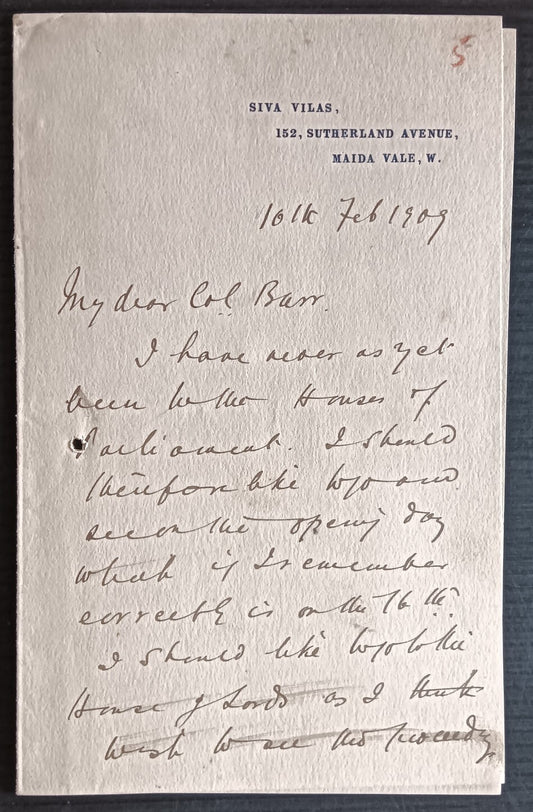 5
SIVA VILAS,
152, SUTHERLAND AVENUE,
MAIDA VALE, W.
10th Feb 1909
My dear Col. Barr.
I have never as yet
been to the Houses of
Parliament. I should
therefore like to go and
see on the opening day
which if I remember
correctly is on the 16th.
I should like to go to the
House of Lords as I think
wish to see the